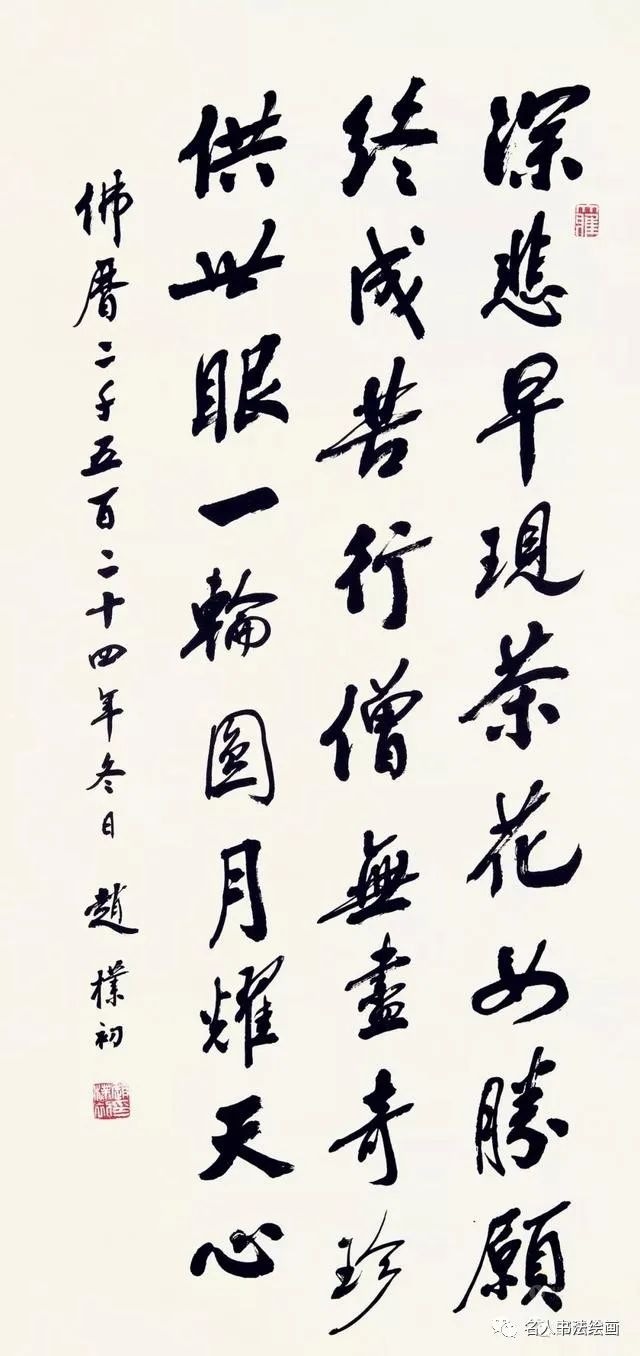 深悲早現茶花女勝願
終成苦行僧無盡奇珍
供世眼一輪圓月耀天心
佛曆二千五百二十四年冬日 趙樸初
名人书法绘画